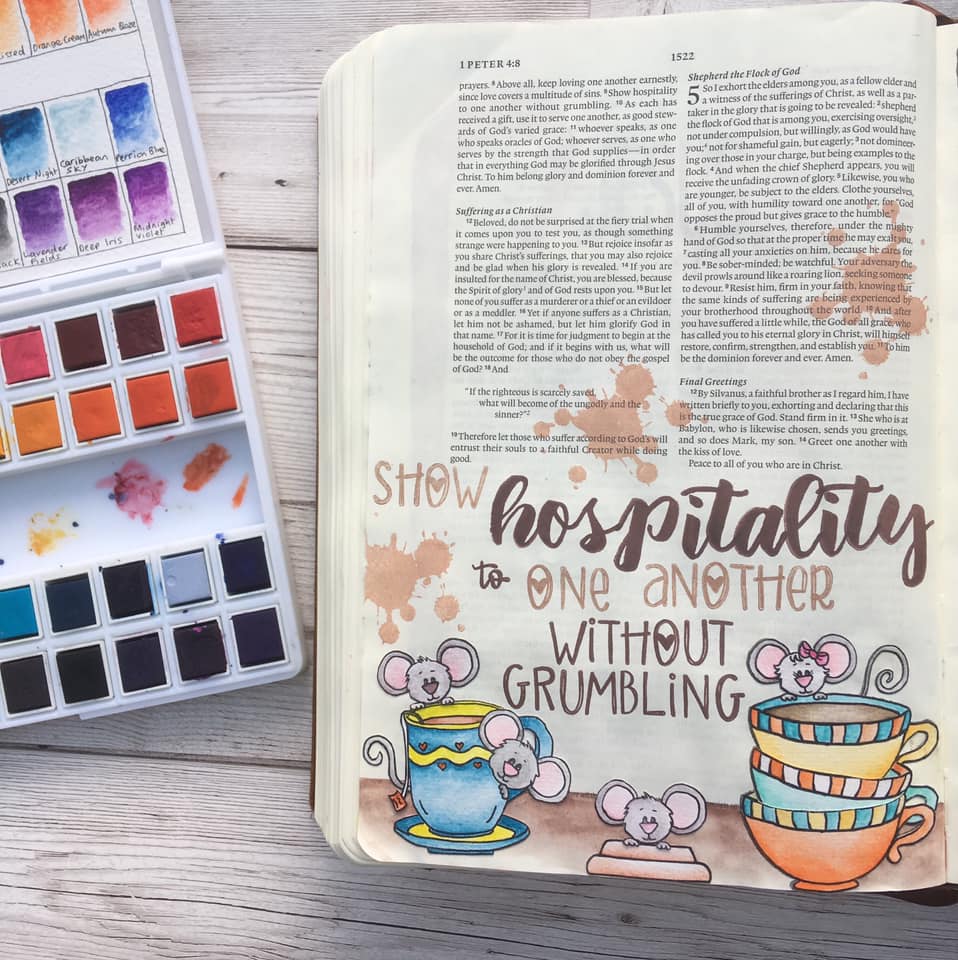 Orange Cream
Autumn Blaze
Desert Night
CARIBBEAN
SKY
Perrion Blue
Lavender
Fields
Deep Iris
Midnight
Violet
1 PETER 4:8
1522
prayers. 8Above all, keep loving one another earnestly,
since love covers a multitude of sins. 9Show hospitality
to one another without grumbling. 10As each has
received a gift, use it to serve one another, as good stew-
ards of God's varied grace: 11whoever speaks, as one
who speaks oracles of God; whoever serves, as one who
serves by the strength that God supplies—in order
that in everything God may be glorified through Jesus
Christ. To him belong glory and dominion forever and
ever. Amen.
Suffering as a Christian
12Beloved, do not be surprised at the fiery trial when
it comes upon you to test you, as though something
strange were happening to you. 13But rejoice insofar as
you share Christ's sufferings, that you may also rejoice
and be glad when his glory is revealed. 14If you are
insulted for the name of Christ, you are blessed, because
the Spirit of glory1 and of God rests upon you. 15But let
none of you suffer as a murderer or a thief or an evildoer
or as a meddler. 16Yet if anyone suffers as a Christian,
let him not be ashamed, but let him glorify God in
that name. 17For it is time for judgment to begin at the
household of God; and if it begins with us, what will
be the outcome for those who do not obey the gospel
of God? 18And
"If the righteous is scarcely saved,
what will become of the ungodly and the
sinner?"2
19Therefore let those who suffer according to God's will
entrust their souls to a faithful Creator while doing
good.
Shepherd the Flock of God
5 So I exhort the elders among you, as a fellow elder and
a witness of the sufferings of Christ, as well as a par-
taker in the glory that is going to be revealed: 2shepherd
the flock of God that is among you, exercising oversight,3
not under compulsion, but willingly, as God would have
you;4 not for shameful gain, but eagerly; 3not domineer-
ing over those in your charge, but being examples to the
flock. 4And when the chief Shepherd appears, you will
receive the unfading crown of glory. 5Likewise, you who
are younger, be subject to the elders. Clothe yourselves,
all of you, with humility toward one another, for "God
opposes the proud but gives grace to the humble."
6Humble yourselves, therefore, under the mighty
hand of God so that at the proper time he may exalt you,
7casting all your anxieties on him, because he cares for
you. 8Be sober-minded; be watchful. Your adversary the
devil prowls around like a roaring lion, seeking someone
to devour. 9Resist him, firm in your faith, knowing that
the same kinds of suffering are being experienced by
your brotherhood throughout the world. 10And after
you have suffered a little while, the God of all grace, who
has called you to his eternal glory in Christ, will himself
restore, confirm, strengthen, and establish you. 11To him
be the dominion forever and ever. Amen.
Final Greetings
12By Silvanus, a faithful brother as I regard him, I have
written briefly to you, exhorting and declaring that this
is the true grace of God. Stand firm in it. 13She who is at
Babylon, who is likewise chosen, sends you greetings,
and so does Mark, my son. 14Greet one another with
the kiss of love.
Peace to all of you who are in Christ.
SHOW hospitality
to ONE ANOTHER
WiTHOUT
GRUMBLiNG